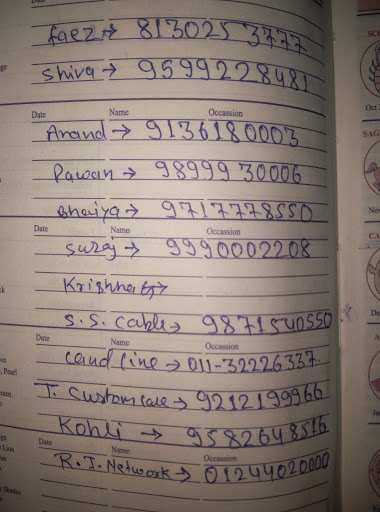 faez → 8130253777
Shiva → 9599228481
Date Name Occassion
Anand → 9136180003
Pawan → 9899930006
Bhaiya → 9717778550
Date Name Occassion
Suraj → 9990002208
Krishna →
S.S. Cable → 9871540550
Land line → 011-32226337.
Date Name Occassion
T. Customcare → 9212199966
Kohli → 9582648516
Date Name Occassion
R.J. Network → 01244020000